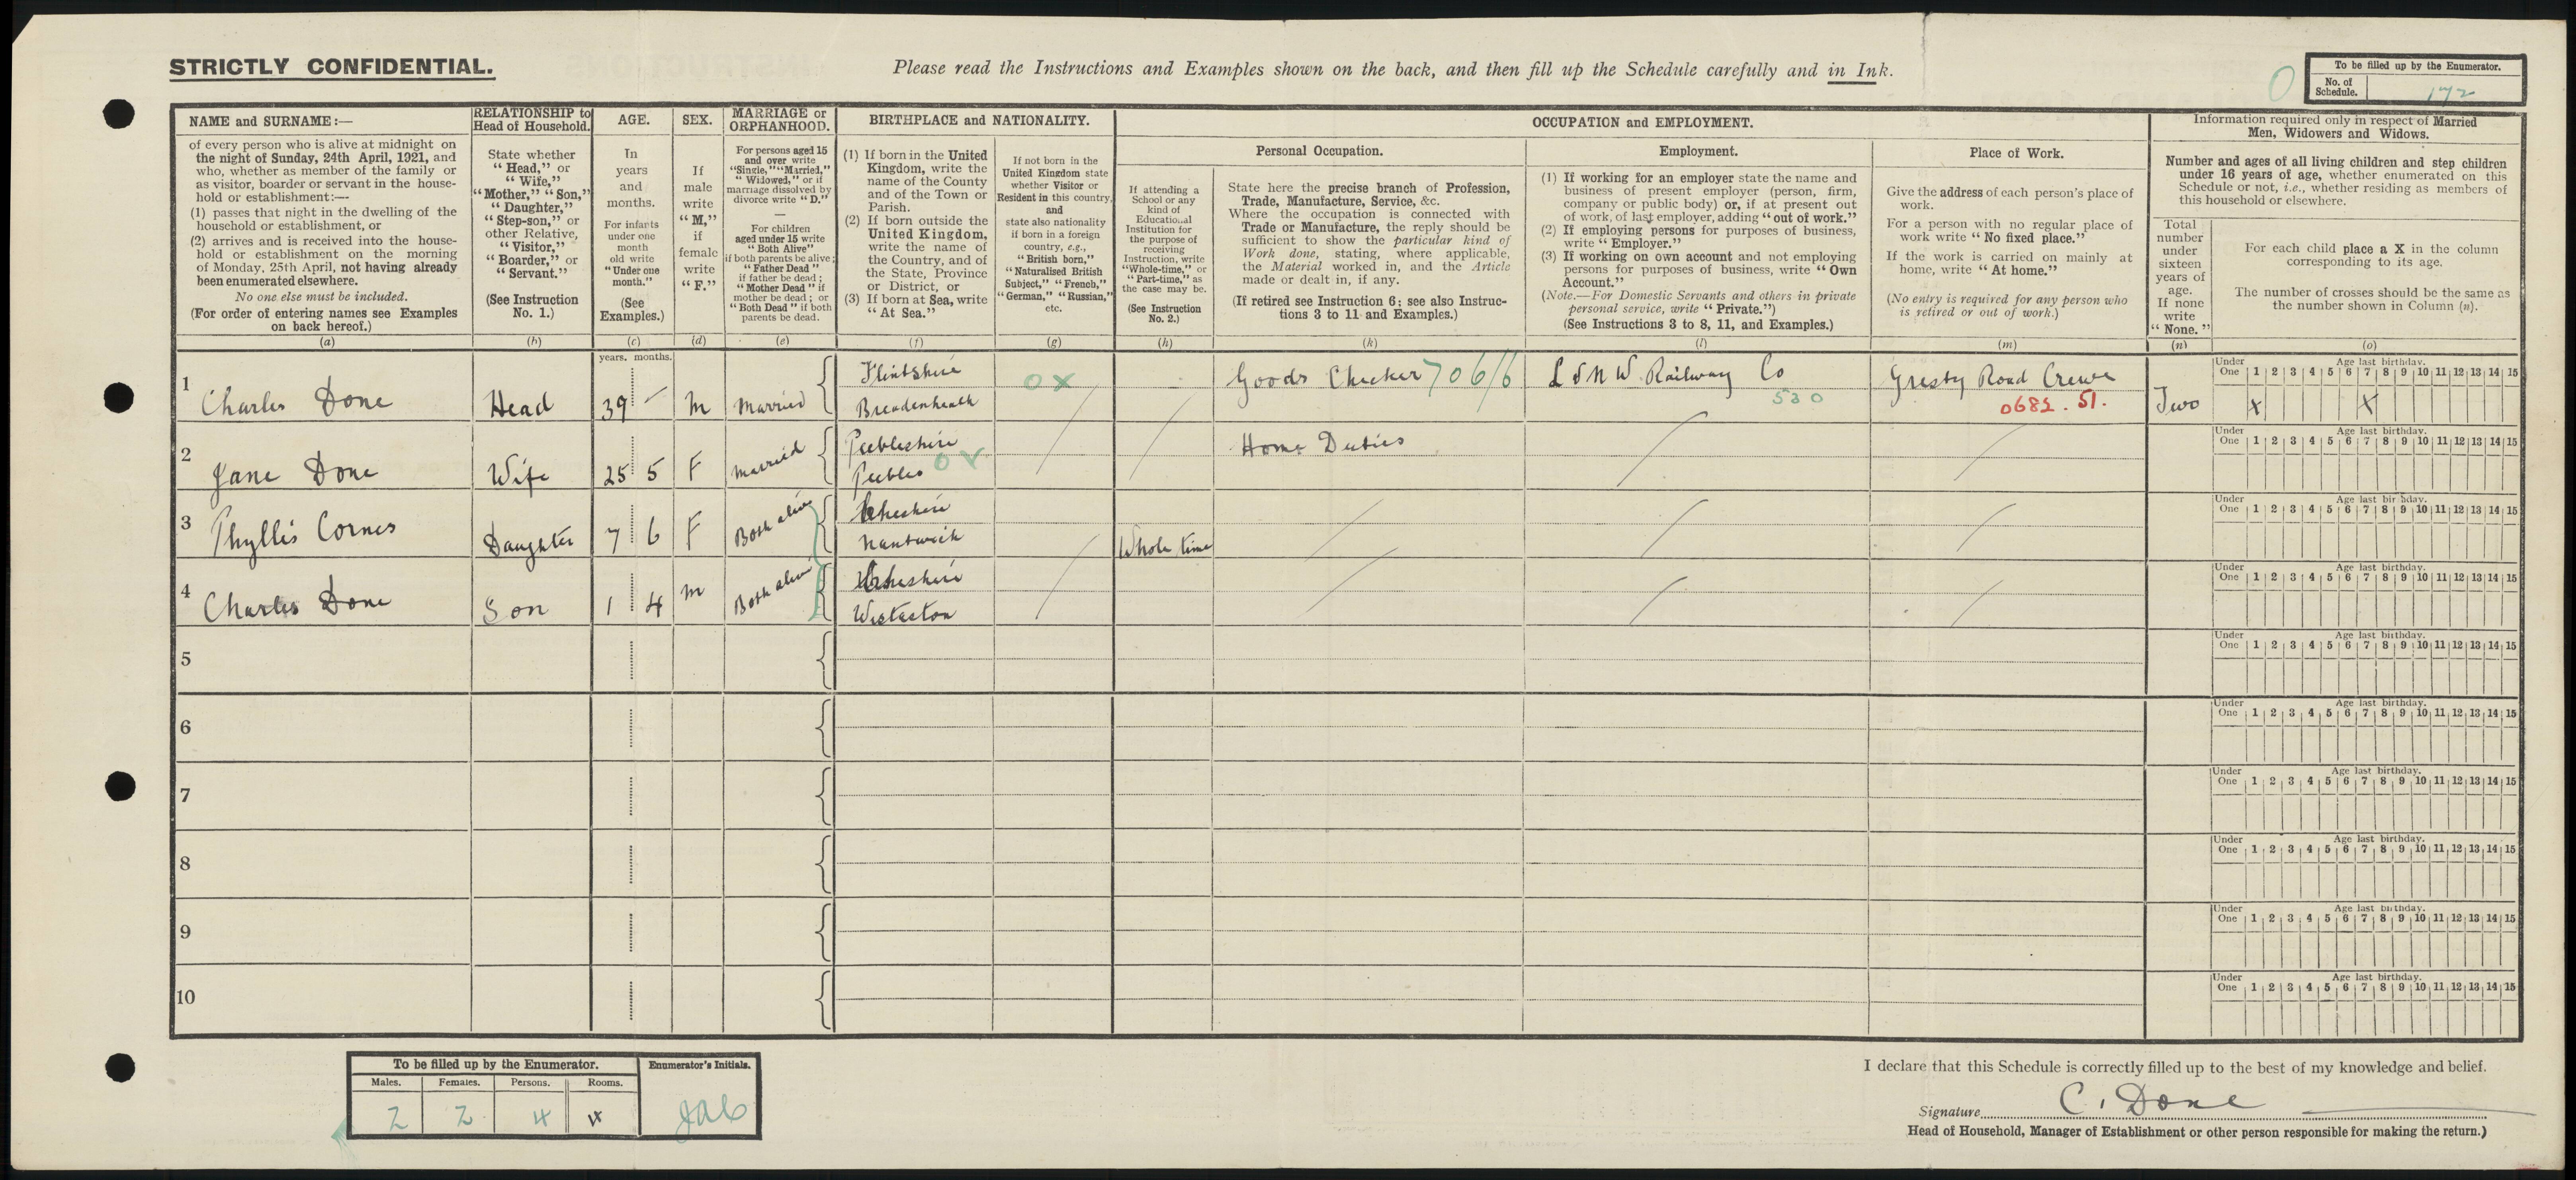 STRICTLY CONFIDENTIAL.
Please read the Instructions and Examples shown on the back, and then fill up the Schedule carefully and in Ink.
To be filled up by the Enumerator.
No. of Schedule. 172
NAME and SURNAME:—
of every person who is alive at midnight on
the night of Sunday, 24th April, 1921, and
who, whether as member of the family or
as visitor, boarder or servant in the house-
hold or establishment:—
(1) passes that night in the dwelling of the
household or establishment, or
(2) arrives and is received into the house-
hold or establishment on the morning
of Monday, 25th April, not having already
been enumerated elsewhere.
No one else must be included.
(For order of entering names see Examples
on back hereof.)
(a)
RELATIONSHIP to
Head of Household.
State whether
"Head," or
"Wife,"
"Mother," "Son,"
"Daughter,"
"Step-son," or
other Relative,
"Visitor,"
"Boarder," or
"Servant."
(See Instruction
No. 1.)
(b)
AGE.
In
years
and
months.
For infants
under one
month
old write
"Under one
month."
(See
Examples.)
(c)
SEX.
If
male
write
"M,"
if
female
write
"F."
(d)
MARRIAGE or
ORPHANHOOD.
For persons aged 15
and over write
"Single," "Married,"
"Widowed," or if
marriage dissolved by
divorce write "D."
For children
aged under 15 write
"Both Alive"
if both parents be alive;
"Father Dead"
if father be dead;
"Mother Dead" if
mother be dead; or
"Both Dead" if both
parents be dead.
(e)
BIRTHPLACE and NATIONALITY.
(1) If born in the United
Kingdom, write the
name of the County
and of the Town or
Parish.
(2) If born outside the
United Kingdom,
write the name of
the Country, and of
the State, Province
or District, or
(3) If born at Sea, write
"At Sea."
(f)
If not born in the
United Kingdom state
whether Visitor or
Resident in this country,
and
state also nationality
if born in a foreign
country, e.g.,
"British born,"
"Naturalised British
Subject," "French,"
"German," "Russian,"
etc.
(g)
OCCUPATION and EMPLOYMENT.
If attending a
School or any
kind of
Educational
Institution for
the purpose of
receiving
Instruction, write
"Whole-time," or
"Part-time," as
the case may be.
(See Instruction
No. 2.)
(h)
Personal Occupation.
State here the precise branch of Profession,
Trade, Manufacture, Service, &c.
Where the occupation is connected with
Trade or Manufacture, the reply should be
sufficient to show the particular kind of
Work done, stating, where applicable,
the Material worked in, and the Article
made or dealt in, if any.
(If retired see Instruction 6; see also Instruc-
tions 3 to 11 and Examples.)
(k)
Employment.
(1) If working for an employer state the name and
business of present employer (person, firm,
company or public body) or, if at present out
of work, of last employer, adding "out of work."
(2) If employing persons for purposes of business,
write "Employer."
(3) If working on own account and not employing
persons for purposes of business, write "Own
Account."
(Note.—For Domestic Servants and others in private
personal service, write "Private.")
(See Instructions 3 to 8, 11, and Examples.)
(l)
Place of Work.
Give the address of each person's place of
work.
For a person with no regular place of
work write "No fixed place."
If the work is carried on mainly at
home, write "At home."
(No entry is required for any person who
is retired or out of work.)
(m)
Information required only in respect of Married
Men, Widowers and Widows.
Number and ages of all living children and step children
under 16 years of age, whether enumerated on this
Schedule or not, i.e., whether residing as members of
this household or elsewhere.
Total
number
under
sixteen
years of
age.
If none
write
"None."
(n)
For each child place a X in the column
corresponding to its age.
The number of crosses should be the same as
the number shown in Column (n).
(o)
years. months.
Under One Age last birthday. 1 2 3 4 5 6 7 8 9 10 11 12 13 14 15
1 Charles Done Head 39 – M Married Flintshire Breadenheath OX Goods Checker 706/6 L & N W. Railway Co 530 Gresty Road Crewe 0682. 51. Two X X
Under One Age last birthday. 1 2 3 4 5 6 7 8 9 10 11 12 13 14 15
2 Jane Done Wife 25 5 F Married Peebleshire Peebles Home Duties
Under One Age last birthday. 1 2 3 4 5 6 7 8 9 10 11 12 13 14 15
3 Phyllis Cornes Daughter 7 6 F Both alive Cheshire Nantwich Whole time
Under One Age last birthday. 1 2 3 4 5 6 7 8 9 10 11 12 13 14 15
4 Charles Done Son 1 4 M Both alive Cheshire Wistaston
Under One Age last birthday. 1 2 3 4 5 6 7 8 9 10 11 12 13 14 15
5
Under One Age last birthday. 1 2 3 4 5 6 7 8 9 10 11 12 13 14 15
6
Under One Age last birthday. 1 2 3 4 5 6 7 8 9 10 11 12 13 14 15
7
Under One Age last birthday. 1 2 3 4 5 6 7 8 9 10 11 12 13 14 15
8
Under One Age last birthday. 1 2 3 4 5 6 7 8 9 10 11 12 13 14 15
9
Under One Age last birthday. 1 2 3 4 5 6 7 8 9 10 11 12 13 14 15
10
Under One Age last birthday. 1 2 3 4 5 6 7 8 9 10 11 12 13 14 15
To be filled up by the Enumerator.
Enumerator's Initials.
Males. Females. Persons. Rooms.
2 2 4 4
I declare that this Schedule is correctly filled up to the best of my knowledge and belief.
Signature C. Done
Head of Household, Manager of Establishment or other person responsible for making the return.)